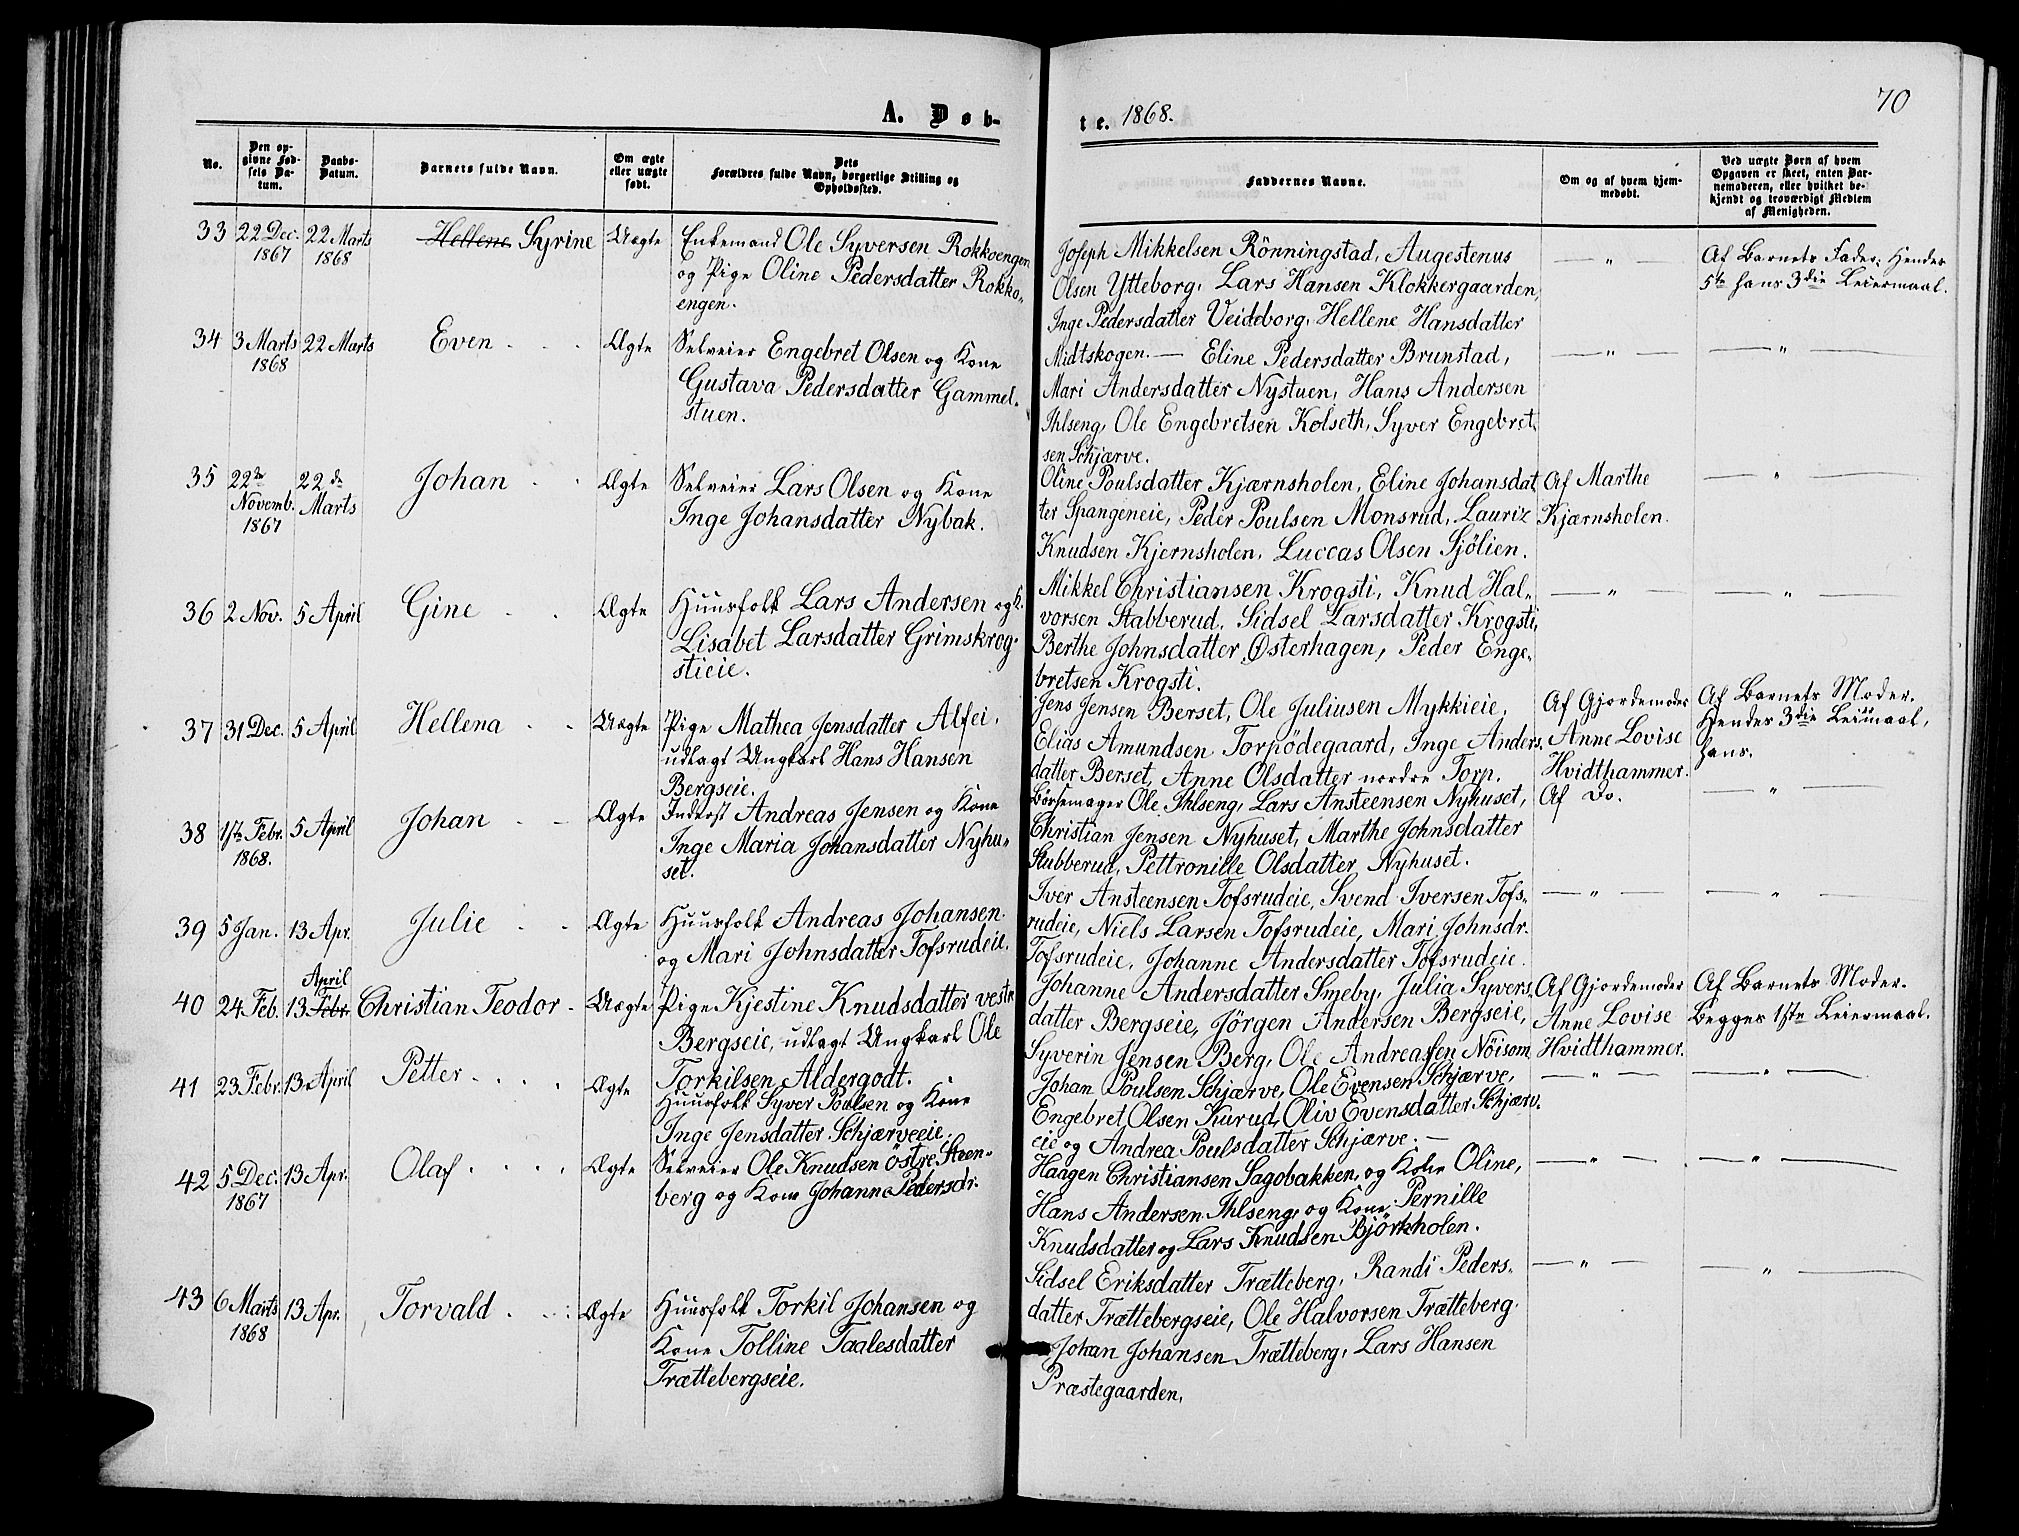 A. Døb-
te. 1868.
70
No.
Den op-
givne Fød-
sels Da-
tum.
Daabs-
Datum.
Barnets fulde Navn.
Om ægte
eller uægte
født.
Dets
Forældres fulde Navn, borgerlige Stilling og
Opholdssted.
Faddernes Navne.
Om og af hvem hjem-
medøbt.
Ved uægte Børn af hvem
Opgaven er skeet, enten Bar-
nemoderen, eller hvilket be-
kjendt og troværdigt Medlem
af Menigheden.
33 22 Dec. 1867
22 Marts 1868
Hellene Syrine
Uægte
Enkemand Ole Syversen Rokkoengen
og Pige Oline Pedersdatter Rokko-
engen.
Joseph Mikkelsen Rönningstad, Augestenus
Olsen Ytteborg, Lars Hansen Klokkergaarden,
Inge Pedersdatter Veideborg, Hellene Hansdatter
Midtskogen. —
— " —
Af Barnets Fader; Hendes
5te hans 3die Leiermaal.
34 3 Marts 1868
22 Marts
Even
Ægte
Selveier Engebret Olsen og Kone
Gustava Pedersdatter Gammel-
stuen.
Eline Pedersdatter Brunstad,
Mari Andersdatter Nystuen, Hans Andersen
Ihlseng, Ole Engebretsen Kolseth, Syver Engebret-
sen Schjærve.
— " —
— " —
35 22de Novemb. 1867
22de Marts
Johan
Ægte
Selveier Lars Olsen og Kone
Inge Johansdatter Nybak.
Oline Poulsdatter Kjærnsholen, Eline Johansdat
ter Spangeneie, Peder Poulsen Monsrud, Lauriz
Knudsen Kjernsholen, Luccas Olsen Sjölien.
Af Marthe
Kjærnsholen.
— " —
36 2 Nov.
5 April
Gine
Ægte
Huusfolk Lars Andersen og K.
Lisabet Larsdatter Grimskrog-
stieie.
Mikkel Christiansen Krogsti, Knud Hal-
vorsen Stabberud, Sidsel Larsdatter Krogsti,
Berthe Johnsdatter Østerhagen, Peder Enge-
bretsen Krogsti.
— " —
— " —
37 31 Dec.
5 April
Hellena
Uægte
Pige Mathea Jensdatter Alfei,
udlagt Ungkarl Hans Hansen
Bergseie.
Jens Jensen Berset, Ole Juliusen Mykkieie,
Elias Amundsen Torpödegaard, Inge Anders-
datter Berset, Anne Olsdatter nordre Torp.
Af Gjordemoder
Anne Lovise
Hvidthammer.
Af Barnets Moder.
Hendes 3die Leiemaal,
hans.
38 1ste Febr. 1868.
5 April
Johan
Ægte
Inderst Andreas Jensen og Kone
Inge Maria Johansdatter Nyhu-
set.
Börsemager Ole Ihlseng, Lars Ansteensen Nyhuset,
Christian Jensen Nyhuset, Marthe Johnsdatter
Stubberud, Pettronille Olsdatter Nyhuset.
Af Do.
— " —
39 5 Jan.
13 Apr.
Julie
Ægte
Huusfolk Andreas Johansen
og Mari Johnsdatter Tofsrudeie.
Iver Ansteensen Tofsrudeie, Svend Iversen Tofs-
rudeie, Niels Larsen Tofsrudeie, Mari Johnsdr.
Tofsrudeie, Johanne Andersdatter Tofsrudeie.
— " —
— " —
40 24 Feb.
April
13 Febr.
Christian Teodor
Uægte
Pige Kjestine Knudsdatter vestr
Bergseie, udlagt Ungkarl Ole
Torkilsen Aldergodt.
Johanne Andersdatter Smeby, Julia Syvers-
datter Bergseie, Jörgen Andersen Bergseie,
Syverin Jensen Berg, Ole Andreassen Nöisom
Af Gjordemoder
Anne Lovise
Hvidthammer.
Af Barnets Moder.
Begges 1ste Leiermaal.
41 23 Febr.
13 April
Petter
Ægte
Huusfolk Syver Poulsen og Kone
Inge Jensdatter Schjærveeie.
Johan Poulsen Schjærve, Ole Evensen Schjærve,
Engebret Olsen Kurud, Oliv Evensdatter Schjærv-
eie og Andrea Poulsdatter Schjærve. —
— " —
— " —
42 5 Dec. 1867
13 Apr.
Olaf
Ægte
Selveier Ole Knudsen östre Steen-
berg og Kone Johanne Pedersdr.
Haagen Christiansen Sagobakken, og Kone Oline,
Hans Andersen Ihlseng, og Kone, Pernille
Knudsdatter og Lars Knudsen Björkholen.
— " —
— " —
43 6 Marts 1868
13 Apr.
Torvald
Ægte
Huusfolk Torkil Johansen og
Kone Tolline Taalesdatter
Trættebergseie.
Sidsel Eriksdatter Trætteberg, Randi Peders-
datter Trættebergseie, Ole Halvorsen Trætteberg.
Johan Johansen Trætteberg, Lars Hansen
Præstegaarden.
— " —
— " —